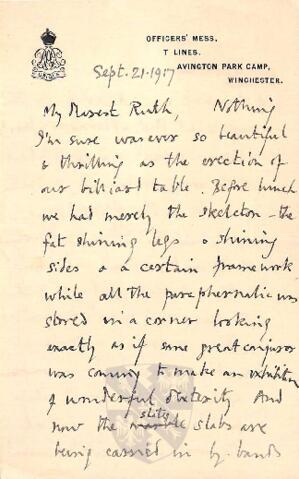 OFFICERS' MESS,
T LINES,
AVINGTON PARK CAMP,
WINCHESTER.
Sept. 21. 1917
My Dearest Ruth, Nothing
I'm sure was ever so beautiful
& thrilling as the erection of
our billiard table. Before lunch
we had merely the skeleton - the
fat shining legs & shining
sides & a certain framework
while all the paraphernalia was
stored in a corner looking
exactly as if some great conjuror
was coming to make an exhibition
of wonderful dexterity And
slate
now the marble slabs are
being carried in by bands